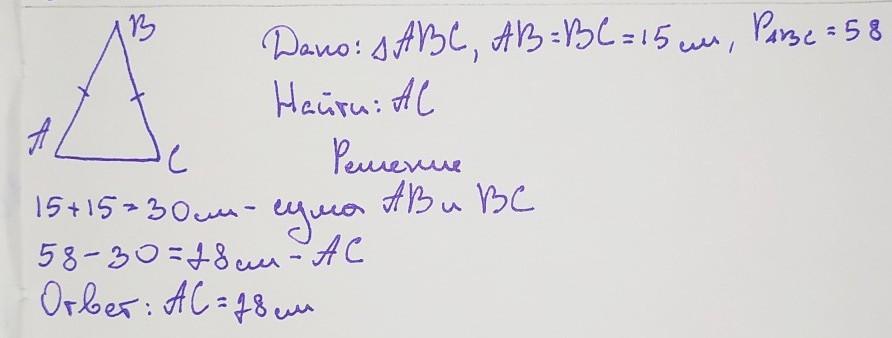 B
Дано: △ABC, AB=BC=15см, PАВС=58
Найти: AC
A
C
Решение
15+15=30см - сума AB и BC
58-30=28см - AC
Ответ: AC=28см